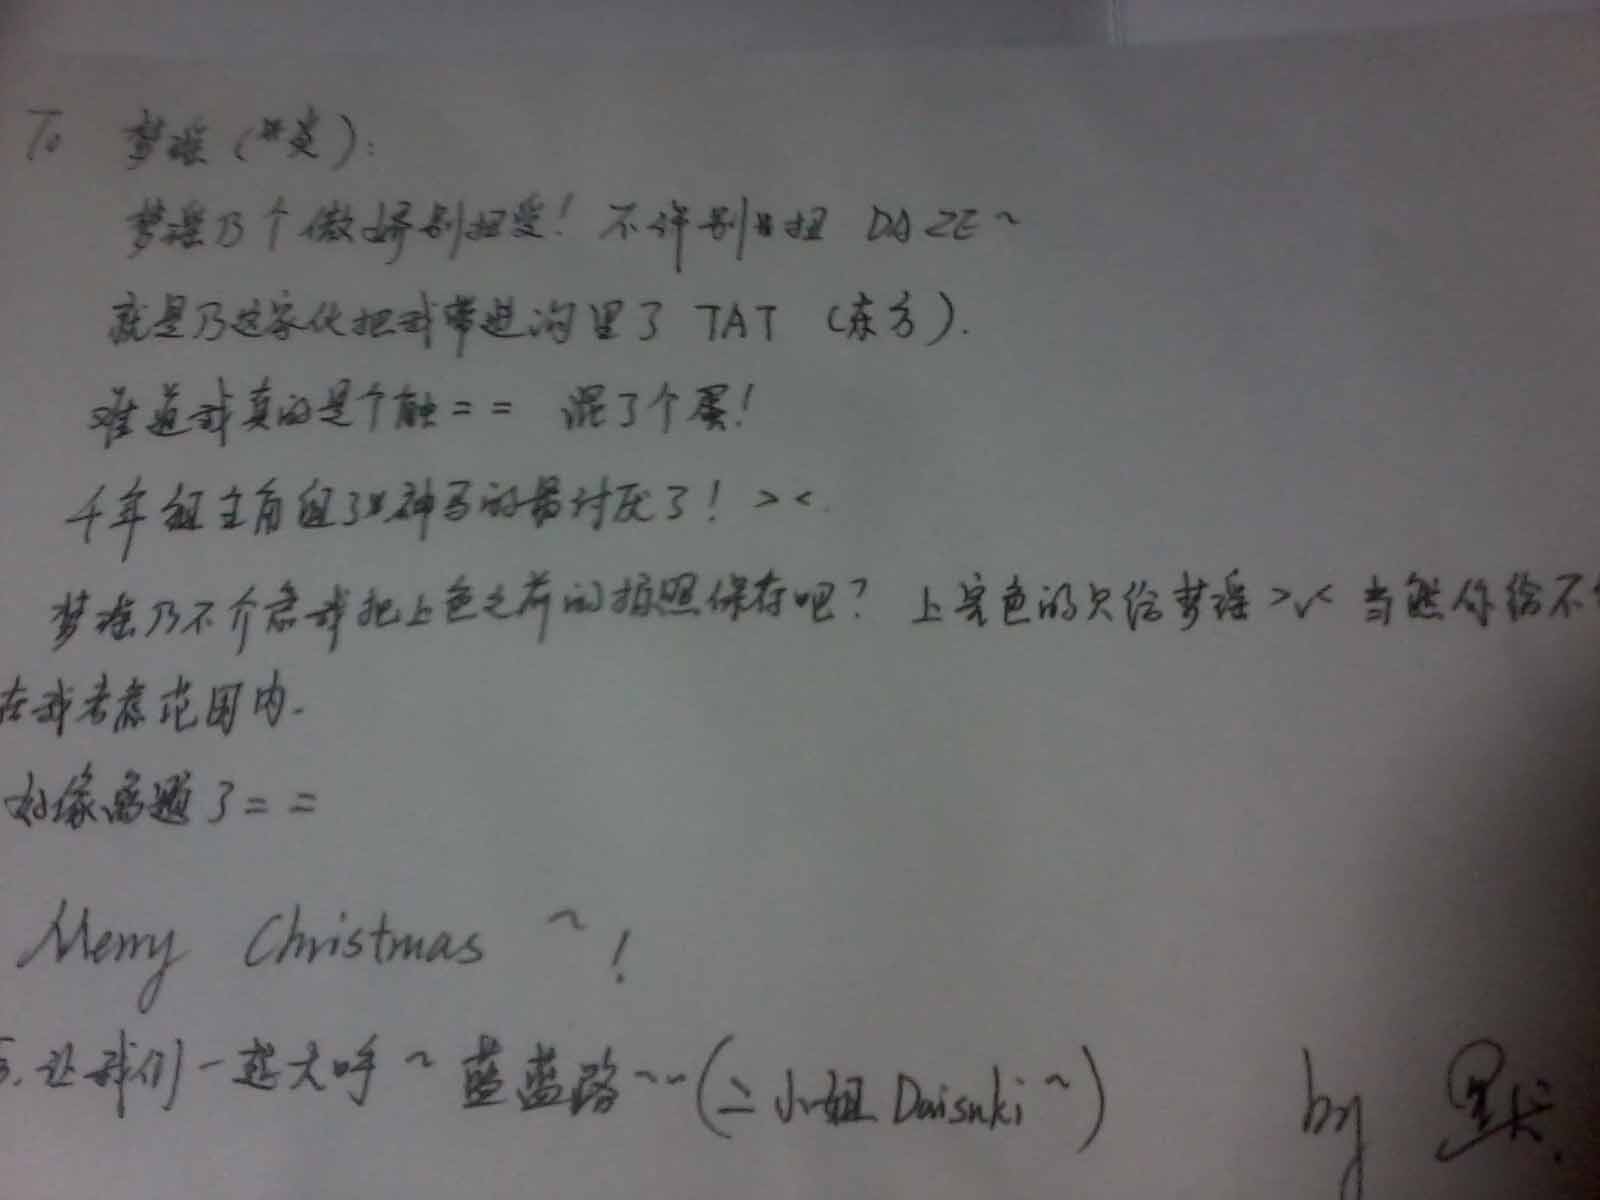 To 梦瑶(
梦瑶乃个傲娇别扭受!不许别扭 DAZE~
就是乃这家伙把我带进沟里了 TAT (东方).
难道我真的是个触== 混了个蛋!
千年组主角组了神马的最讨厌了!><
梦瑶乃不介意我把上色之前的拍照保存吧?上完色的只给梦瑶>v< 当然你给不
在我考虑范围内.
好像离题了==
Merry Christmas ~!
S.让我们一起大呼~蓝蓝路~~(二小姐Daisuki~)
by